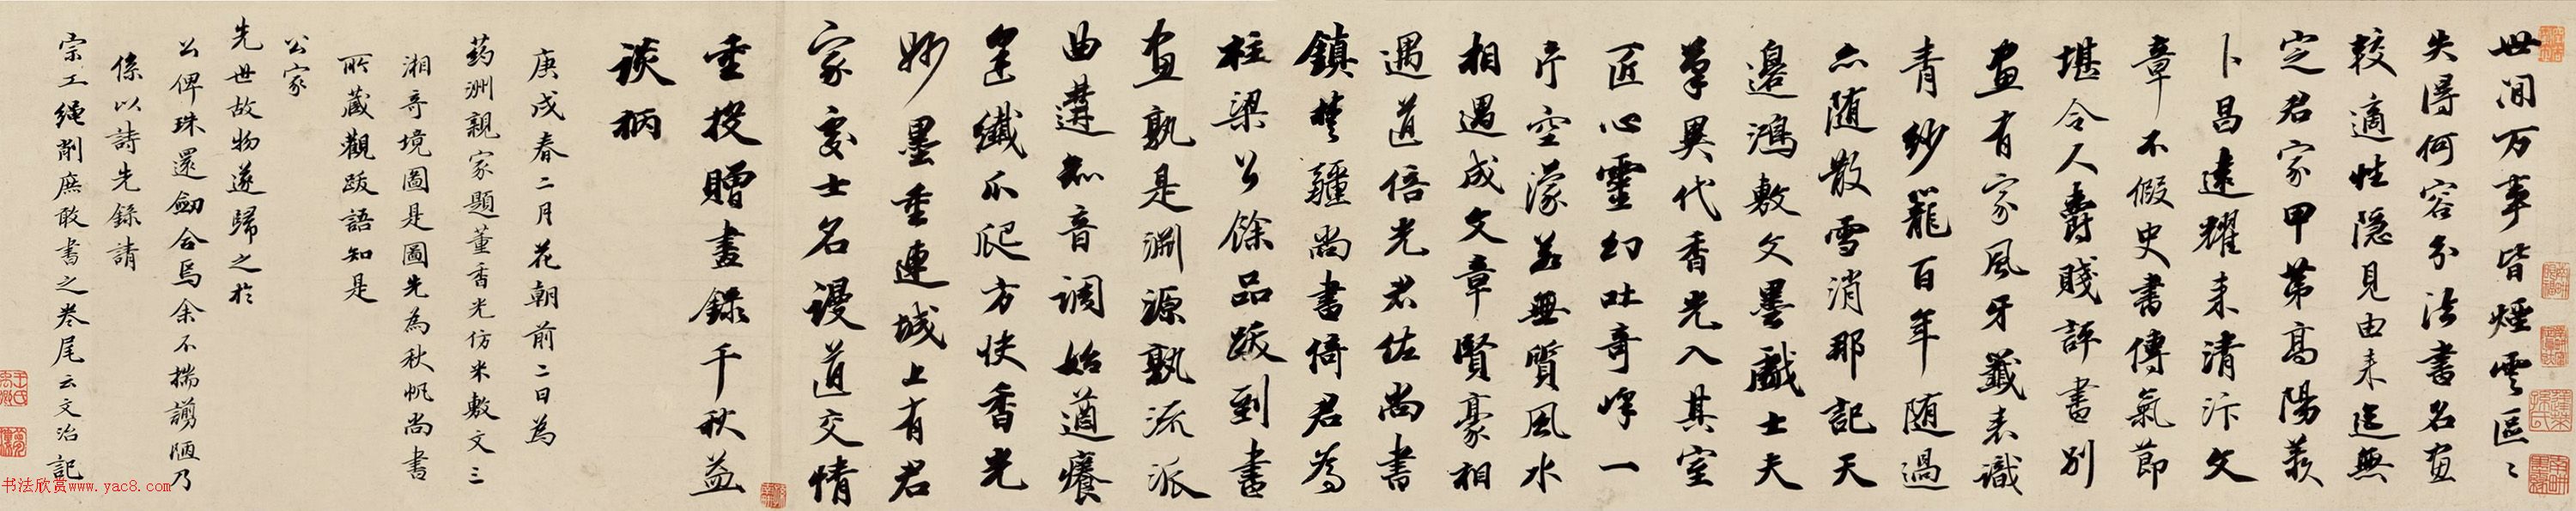 世间万事皆烟云区〻
失得何容分法书名画
较适性隐见由来迄无
定君家甲第高阳裔
卜昌远耀来清汴文
章不假史书传气节
堪令人爵贱评书别
画有家风牙籤表識
青纱籠百年随過
亦随散雪消那記天
邊鴻敷文墨戲士夫
筆異代香光入其室
匠心靈幻吐奇峰一
片空濛並無質風水
相遇成文章賢豪相
遇道倍光君佐尚書
鎮楚疆尚書倚君為
柱梁公餘品跋到書
画孰是淵源孰流派
曲蓋知音調始遒癢
纖爪爬方快香光
妙墨重連城上有君
家处士名谩道交情
重投贈畫録千秋益
談柄
庚戌春二月花朝前二日為
药洲親家題董香光仿米敷文三
湘奇境圖是圖先為秋帆尚書
所藏觀跋語知是
公家
先世故物遂歸之於
公俾珠還劍合焉余不揣譾陋乃
係以詩先録請
宗工繩削庶敢書之卷尾云文治記
书法欣赏www.yac8.com